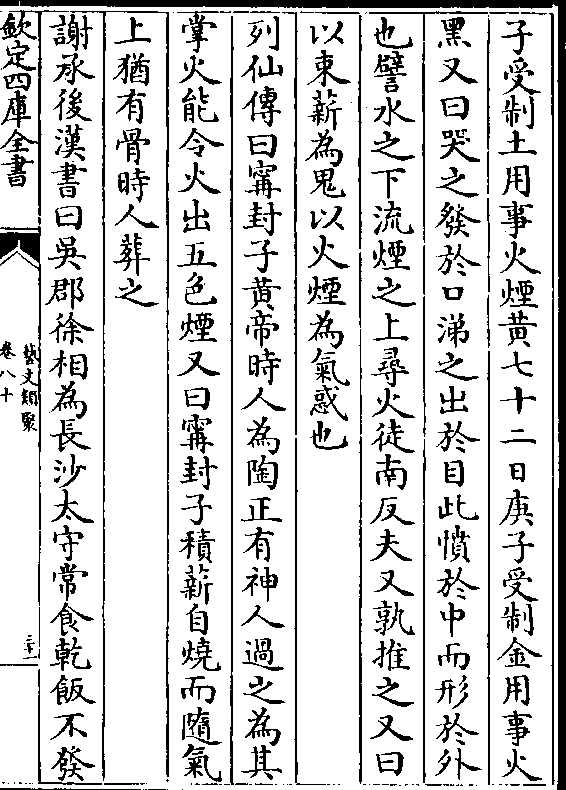 子受制土用事火煙黄七十二日庚子受制金用事火
黑又曰哭之發於口涕之出於目此憤於中而形於外
也譬水之下流煙之上尋火徒南反夫又孰推之又曰
以束薪為鬼以火煙為氣惑也
列仙傳曰甯封子黄帝時人為陶正有神人過之為其
掌火能令火出五色煙又曰甯封子積薪自燒而隨氣
上猶有骨時人葬之
謝承後漢書曰吳郡徐相為長沙太守常食乾飯不發
欽定四庫全書
藝文類聚
卷八十